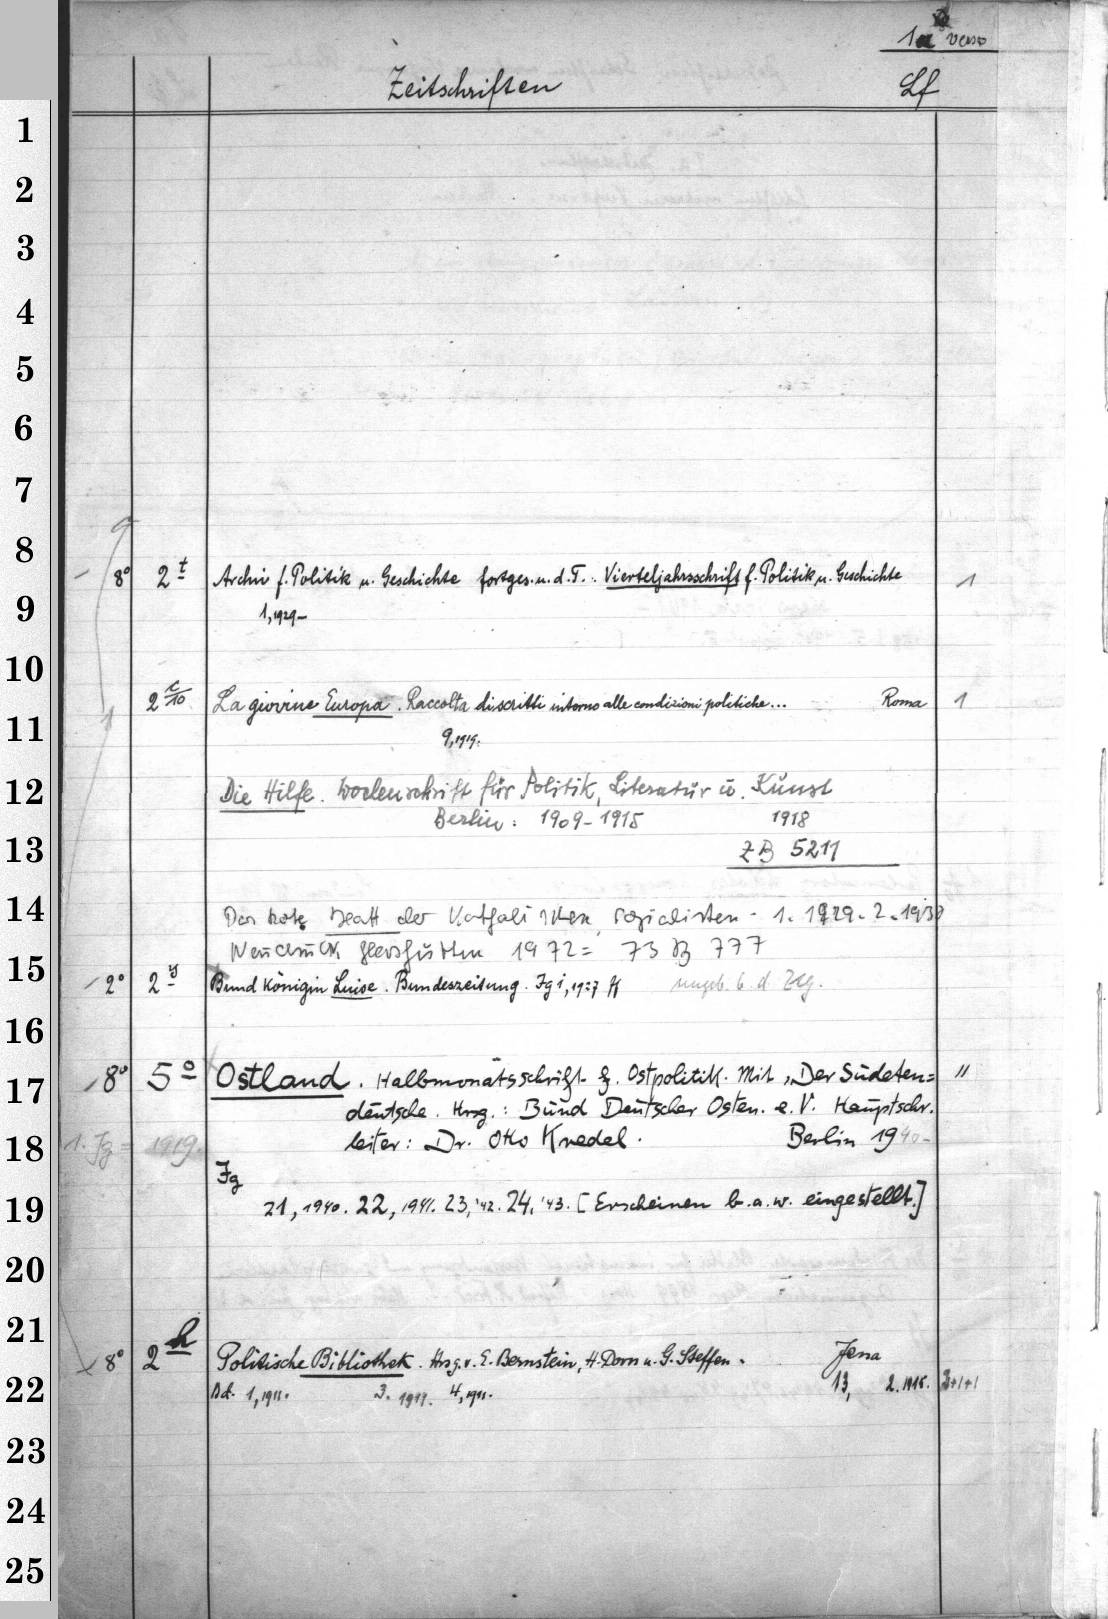 1a verso
Zeitschriften Lf
1
2
3
4
5
6
7
8
8° 2 t Archiv f. Politik u. Geschichte fortges. u. d. T.: Vierteljahrsschrift f. Politik u. Geschichte 1
9
1, 1929–
10
2 c/10 La giovine Europa. Raccolta di scritti intorno alle condizioni politiche... Roma 1
11
9, 1919.
12
Die Hilfe. Wochenschrift für Politik, Literatur u. Kunst
Berlin: 1909–1915 1918
13
ZB 5211
14
Das rote Blatt der Katholischen Sozialisten – 1. 1929–2. 1930
Neudruck Glashütten 1972 = 73 B 777
15
2° 2 y Bund Königin Luise. Bundeszeitung. Jg 1, 1927 ff ungeb. b. d. Ztg.
16
17
8° 5 o Ostland. Halbmonatsschrift f. Ostpolitik. Mit „Der Sudeten= "
deutsche. Hrsg.: Bund Deutscher Osten. e. V. Hauptschr.
18
1. Jg = 1919. leiter: Dr. Otto Kredel. Berlin 1940–
Jg
19
21, 1940. 22, 1941. 23, '42. 24, '43. [Erscheinen b. a. w. eingestellt.]
20
21
8° 2 h Politische Bibliothek. Hrsg. v. E. Bernstein, H. Dorn u. G. Steffen. Jena
22
Bd. 1, 1911. 3. 1911. 4, 1911. 13, 2. 1915. 3+1+1
23
24
25